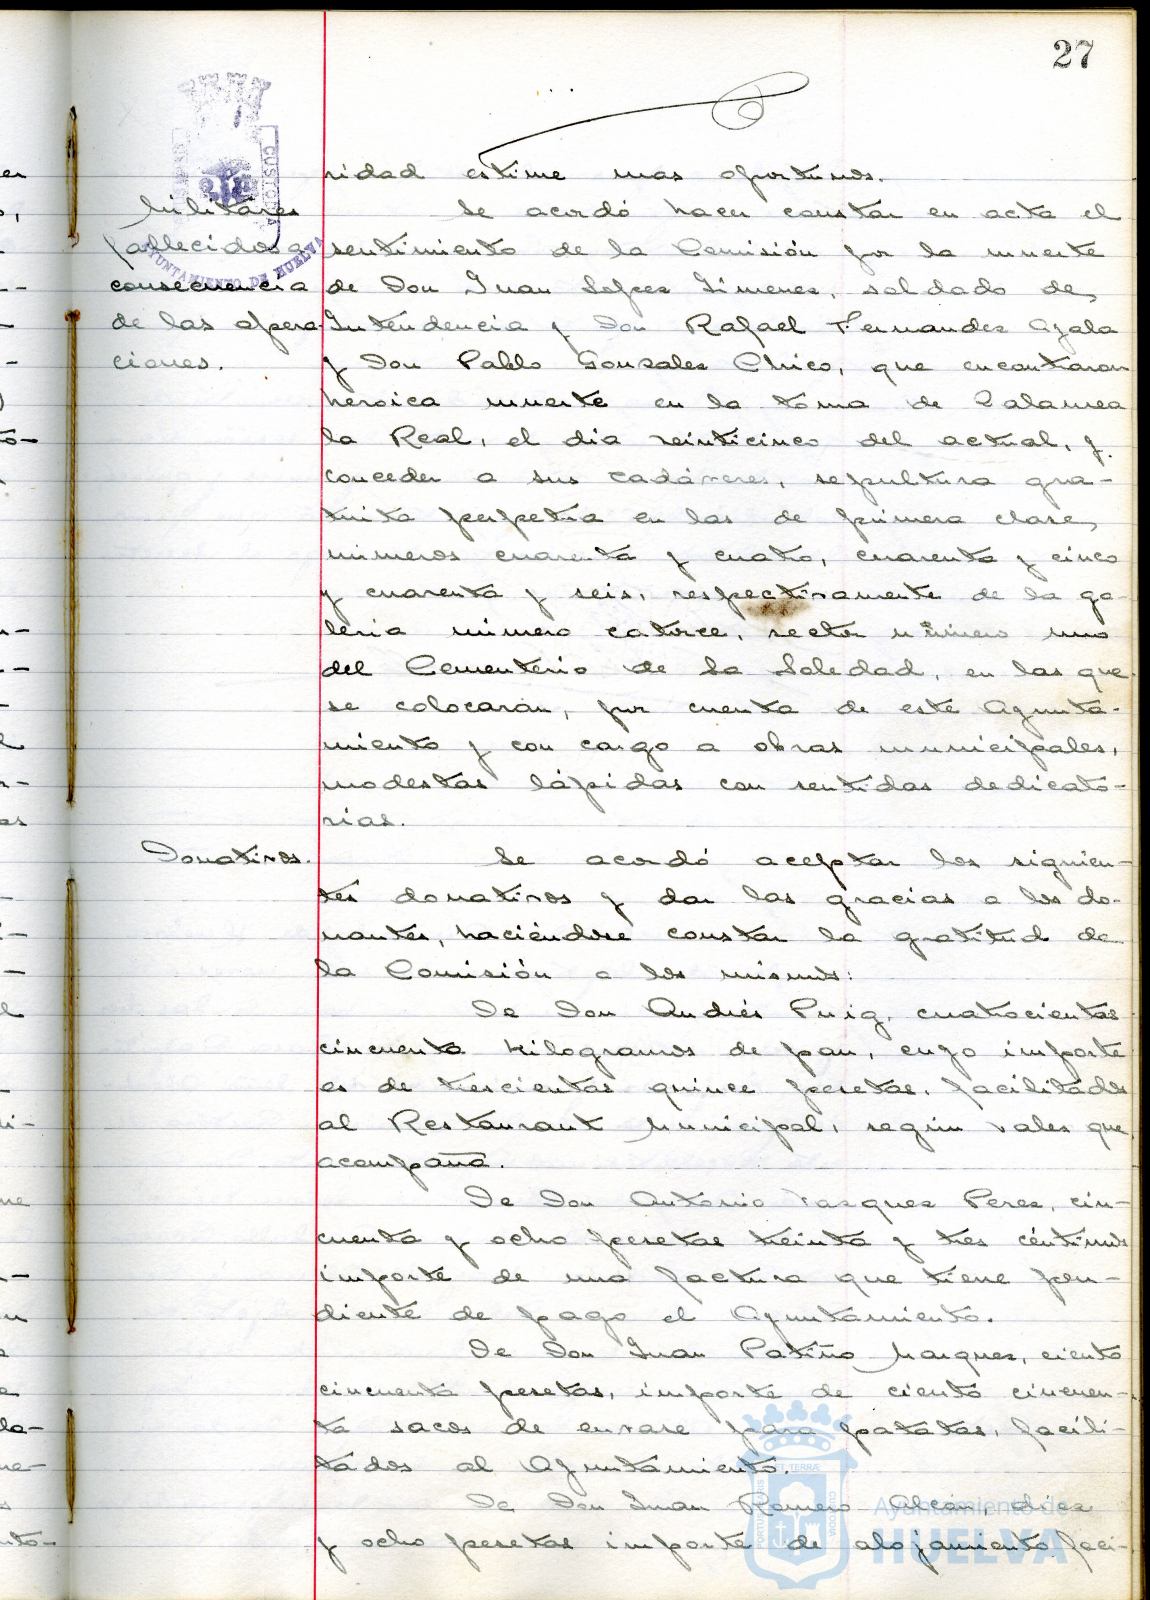 27
ridad estime mas oportunos.
Militares
fallecidos a
consecuencia
de las opera-
ciones.
Se acordó hacer constar en acta el
sentimiento de la Comisión por la muerte
de Don Juan Lopez Jimenez, soldado de
Intendencia y Don Rafael Fernandez Ayala
y Don Pablo Gonzales Chico, que encontraron
heroica muerte en la toma de Zalamea
la Real, el dia veinticinco del actual, y
conceder a sus cadáveres, sepultura gra-
tuita perpetua en las de primera clase,
números cuarenta y cuatro, cuarenta y cinco
y cuarenta y seis, respectivamente de la ga-
leria número catorce, sector número uno
del Cementerio de La Soledad, en las que
se colocarán, por cuenta de este Ayunta-
miento y con cargo a obras municipales,
modestas lápidas con sentidas dedicato-
rias.
Donativos.
Se acordó aceptar los siguien-
tes donativos y dar las gracias a los do-
nantes, haciéndose constar la gratitud de
la Comisión a los mismos:
De Don Andrés Puig, cuatrocientos
cincuenta kilogramos de pan, cuyo importe
es de trescientas quince pesetas, facilitados
al Restaurant Municipal, según vales que
acompaña.
De Don Antonio Vazquez Perez, cin-
cuenta y ocho pesetas treinta y tres céntimos
importe de una factura que tiene pen-
diente de pago el Ayuntamiento.
De Don Juan Patiño Marquez, ciento
cincuenta pesetas, importe de ciento cincuen-
ta sacos de envase para patatas, facili-
tados al Ayuntamiento.
De Don Juan Romero Alcón, diez
y ocho pesetas importe de alojamiento faci-
CUSTODIA
AYUNTAMIENTO DE HUELVA
Ayuntamiento de
HUELVA